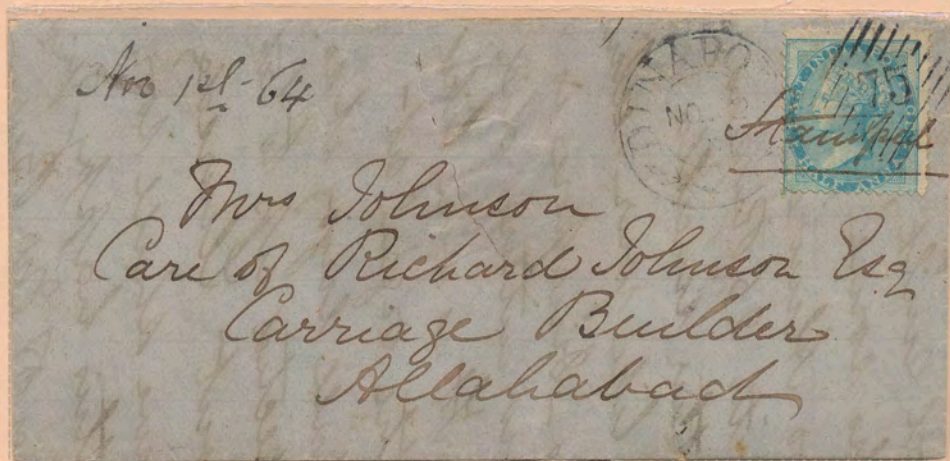 Nov 1st 64
DINAPO
NO
475
Stamped
Mrs Johnson
Care of Richard Johnson Esq
Carriage Builder
Allahabad